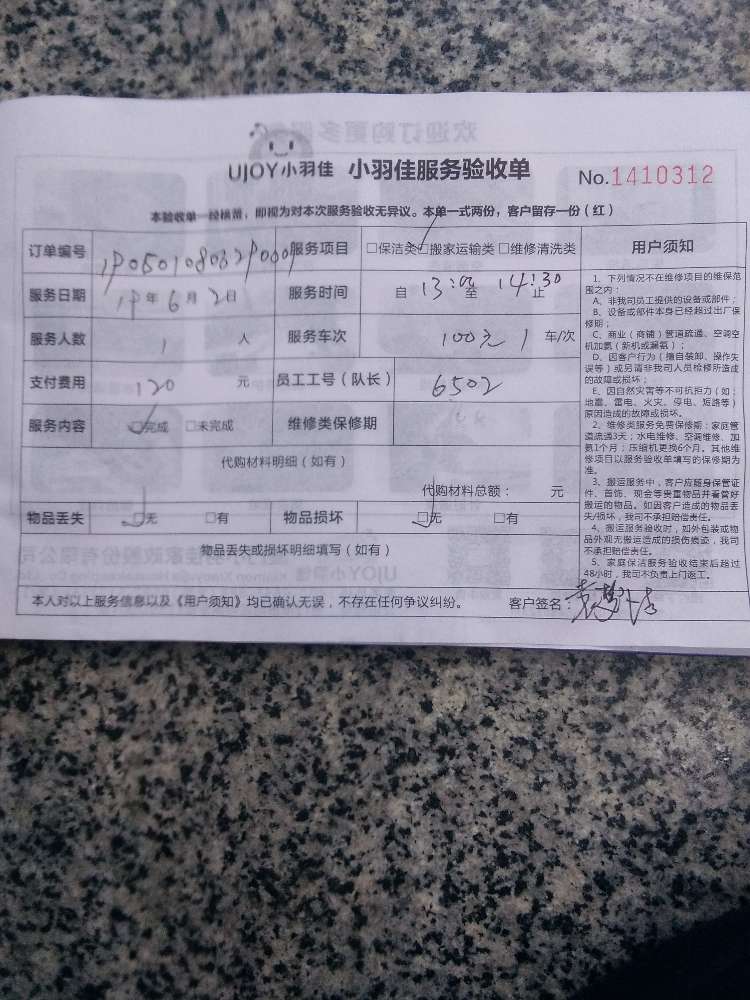 UJOY小羽佳 小羽佳服务验收单 No.1410312
本验收单一经核签，即视为对本次服务验收无异议。本单一式两份，客户留存一份（红）
订单编号 服务项目 □保洁类 □搬家运输类 □维修清洗类
服务日期 19年6月2日 服务时间 自 13:00 至 14:30 止
服务人数 1 人 服务车次 100元 1 车/次
支付费用 120 元 员工工号（队长） 6502
服务内容 □完成 □未完成 维修类保修期
代购材料明细（如有）
代购材料总额： 元
物品丢失 □无 □有 物品损坏 □无 □有
物品丢失或损坏明细填写（如有）
本人对以上服务信息以及《用户须知》均已确认无误，不存在任何争议纠纷。 客户签名：
用户须知
1、下列情况不在维修项目的维保范
围之内：
A、非我司员工提供的设备或部件；
B、设备或部件本身已经超过出厂保
修期；
C、商业（商铺）管道疏通、空调空
机加氟（新机或漏氟）；
D、因客户行为（擅自装卸、操作失
误等）或另请非我司人员检修所造成
的故障或损坏；
E、因自然灾害等不可抗拒力（如：
地震、雷电、火灾、停电、短路等）
原因造成的故障或损坏。
2、维修类服务免费保修期：家庭管
道疏通3天；水电维修、空调维修、加
氟1个月；压缩机更换6个月。其他维
修项目以服务验收单填写的保修期为
准。
3、搬运服务中，客户应随身保管证
件、首饰、现金等贵重物品并看管好
搬运的物品。如因客户造成的物品丢
失/损坏，我司不承担赔偿责任。
4、搬运服务验收时，如外包装或物
品外观无搬运造成的损伤痕迹，我司
不承担赔偿责任。
5、家庭保洁服务验收结束后超过
48小时，我司不负责上门返工。